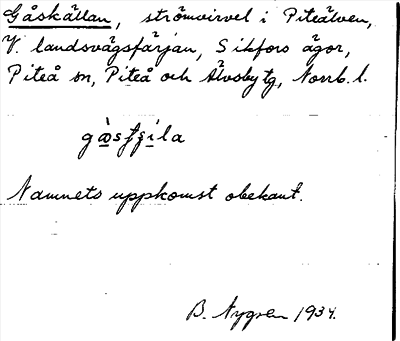 Gåskällan, strömvirvel i Piteälven,
V. landsvägsfärjan, Sikfors ägor,
Piteå sn, Piteå och Älvsby tg, Norrb. l.
Namnets uppkomst obekant.
B. Nygren 1934.